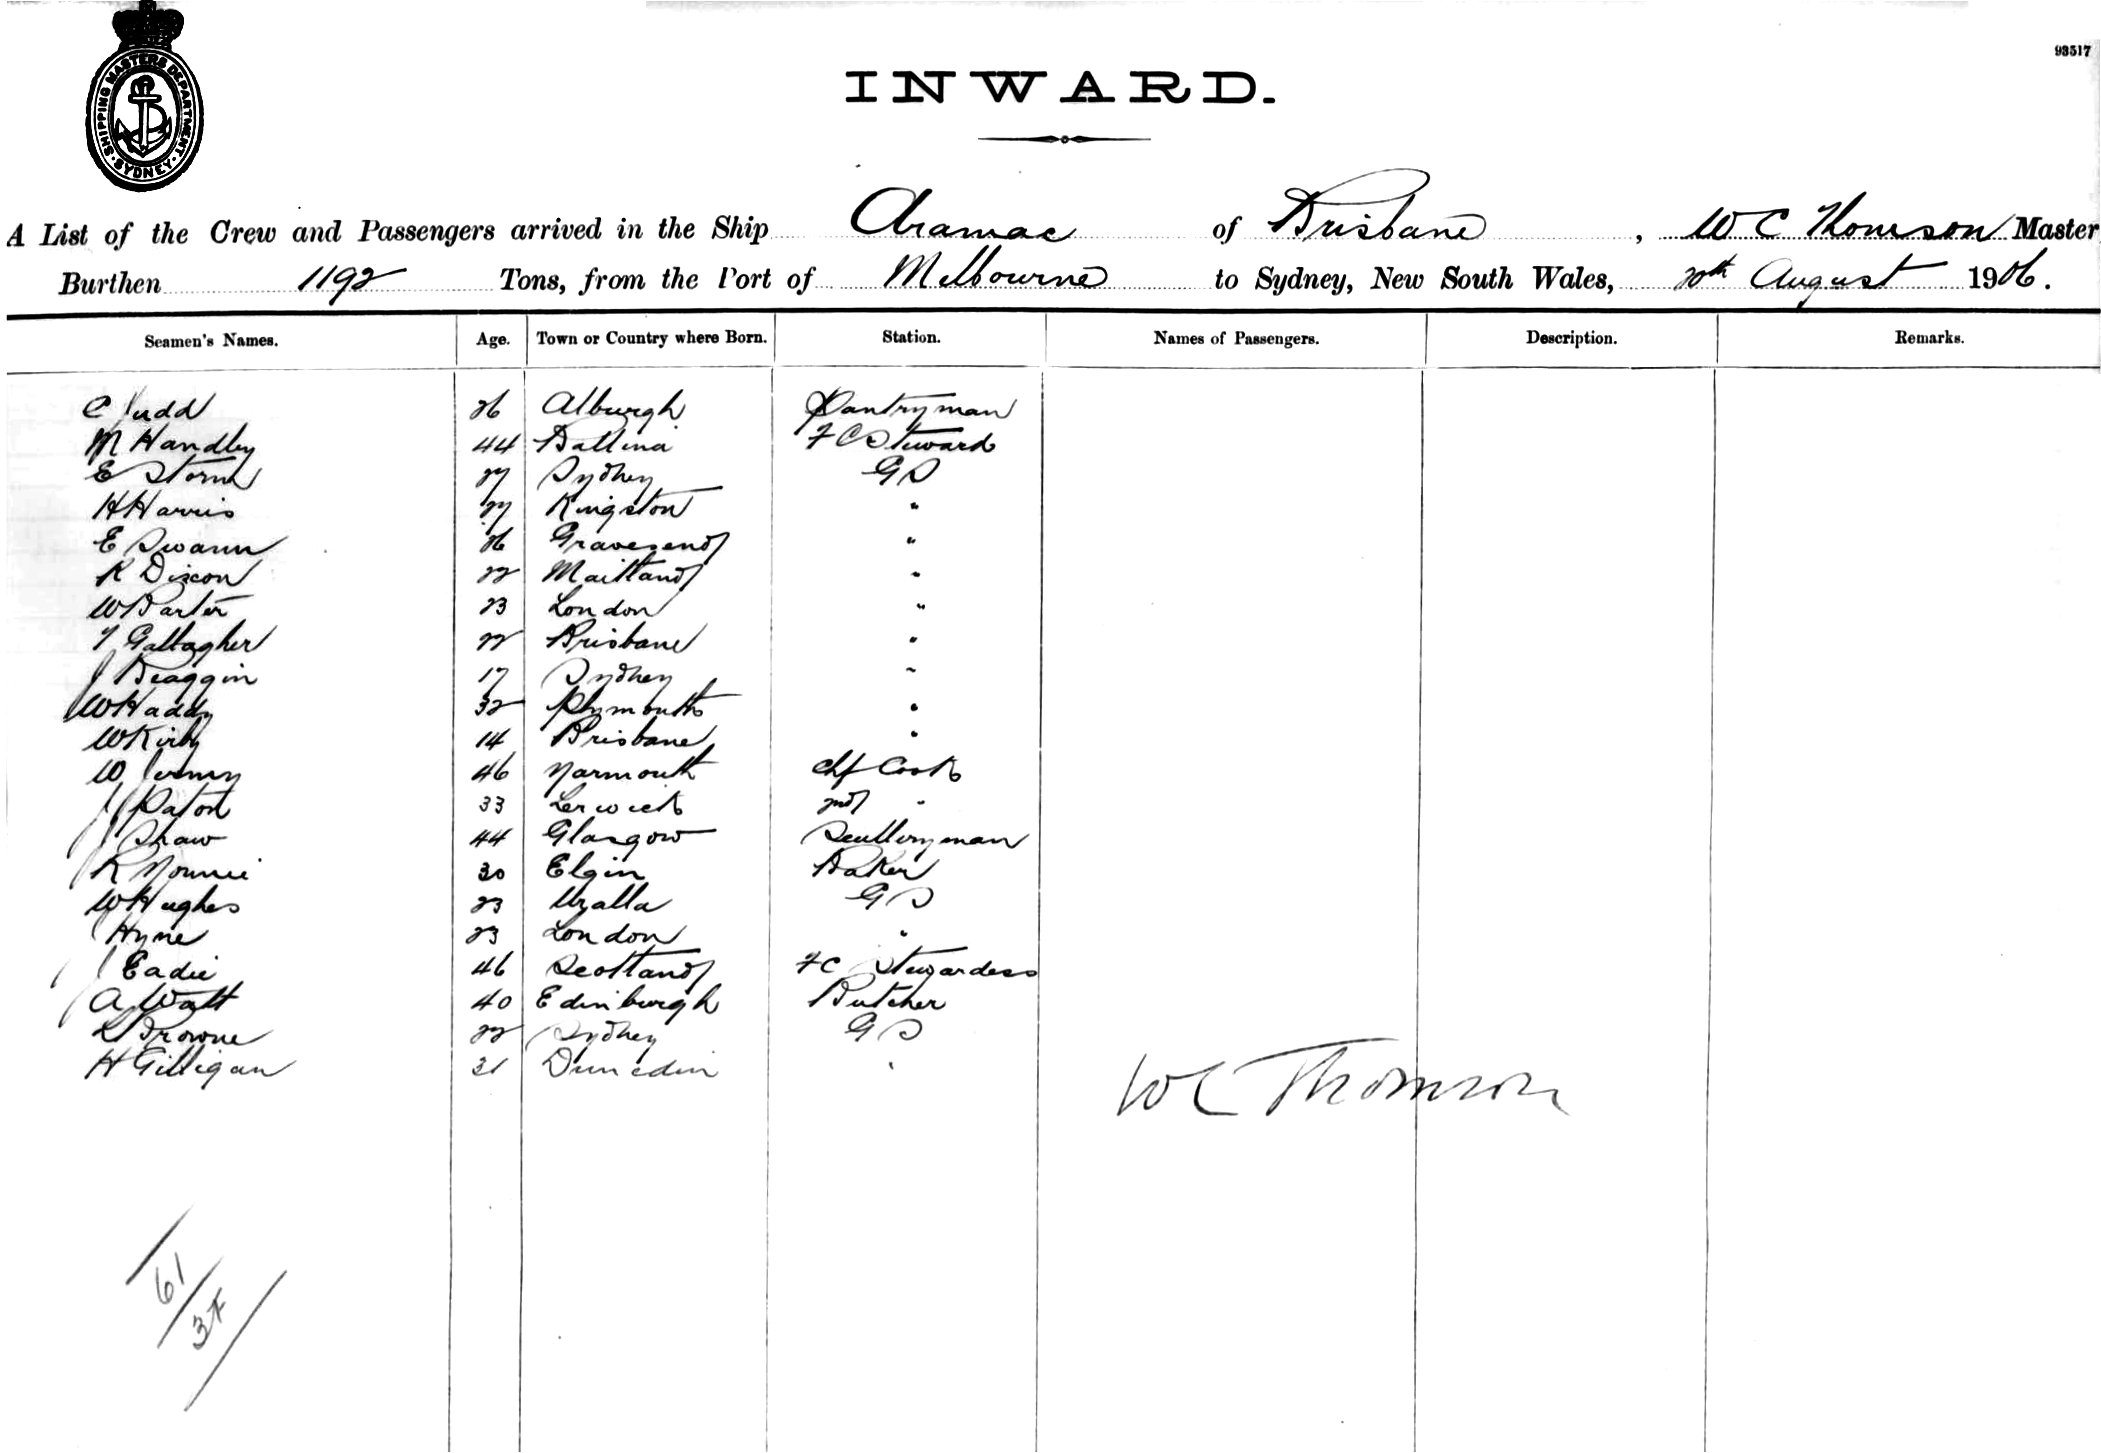 SHIPPING MASTERS DEPARTMENT · SYDNEY ·
93517
INWARD.
A List of the Crew and Passengers arrived in the Ship Aramac of Brisbane, W C Thomson Master
Burthen 1192 Tons, from the Port of Melbourne to Sydney, New South Wales, 20th August 1906.
Seamen's Names. Age. Town or Country where Born. Station. Names of Passengers. Description. Remarks.
C Judd 26 Alburgh Pantryman
M Handley 44 Ballina F C Steward
E Storm 27 Sydney G S
H Harris 27 Kingston "
E Swann 26 Gravesend "
R Dixon 22 Maitland "
W Barter 23 London "
T Gallagher 22 Brisbane "
J 17 Sydney "
W Haddy 32 Plymouth "
W Kirby 14 Brisbane "
W 46 Yarmouth Chf Cook
J Paton 33 Lerwick 2nd "
J Shaw 44 Glasgow Sculleryman
R 30 Elgin Baker
W Hughes 23 Uralla G S
Hyne 23 London "
J Eadie 46 Scotland F C Stewardess
A Watt 40 Edinburgh Butcher
L Browne 22 Sydney G S
H Gilligan 31 Dunedin "
W C Thomson
61